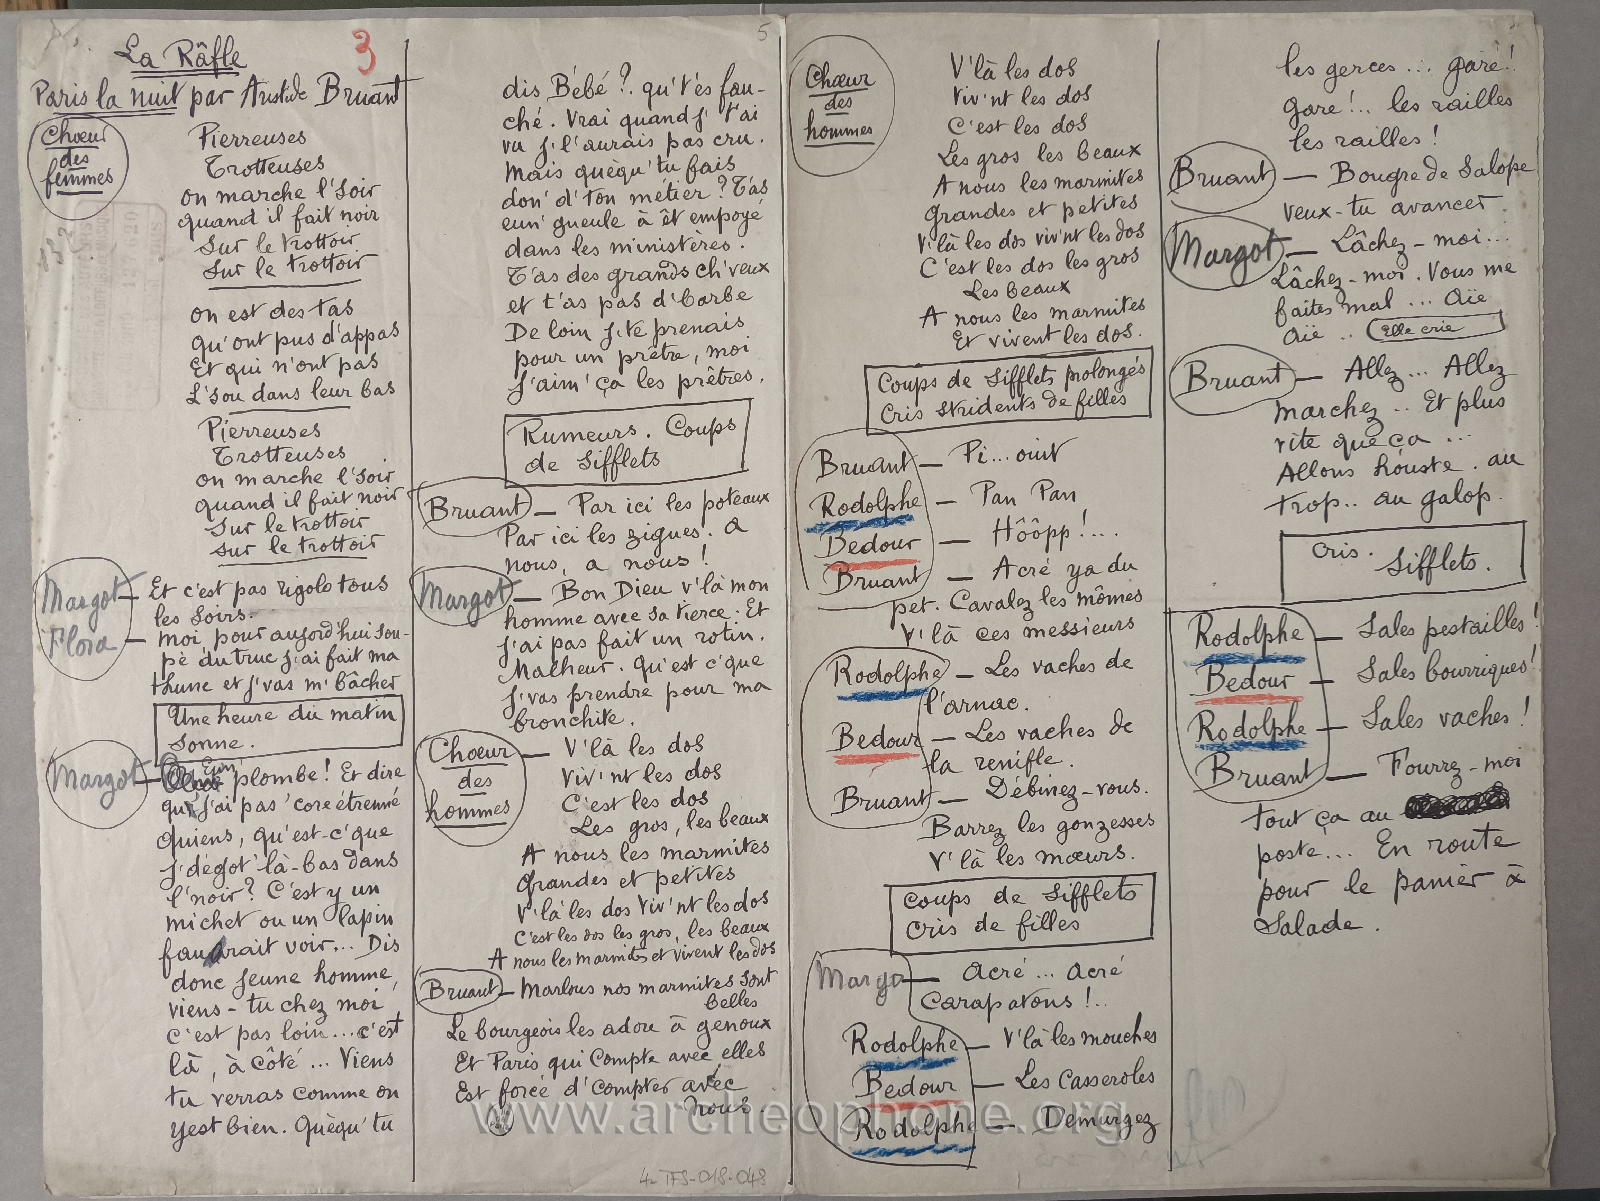 La Râfle
3
Paris la nuit par Aristide Bruant
Chœur
des
femmes
Pierreuses
Trotteuses
on marche l'soir
quand il fait noir
Sur le trottoir
Sur le trottoir
on est des tas
qu'ont pus d'appas
Et qui n'ont pas
L'sou dans leur bas
Pierreuses
Trotteuses
on marche l'soir
quand il fait noir
Sur le trottoir
sur le trottoir
Margot — Et c'est pas rigolo tous
les soirs.
Flora — moi, pour aujord'hui sou-
pé du truc j'ai fait ma
thune et j'vas m'bâcher
Une heure du matin
sonne.
Margot — Eun' plombe! Et dire
qu'j'ai pas 'core étrenné
Quiens, qu'est-c'que
j'dégot' là-bas dans
l'noir? C'est y un
michet ou un lapin
faudrait voir... Dis
donc jeune homme,
viens-tu chez moi,
c'est pas loin... c'est
là, à côté... Viens
tu verras comme on
yest bien. Quèqu'tu
5
dis Bébé?. qu't'es fau-
ché. Vrai quand j't'ai
vu j'l'aurais pas cru.
Mais quèqu'tu fais
don' d'ton métier? T'as
eun' gueule à êt'empoyé
dans les ministères.
T'as des grands ch'veux
et t'as pas d'barbe
De loin j'te prenais
pour un prêtre, moi
j'aim'ça les prêtres.
Rumeurs. Coups
de sifflets
Bruant — Par ici les poteaux
Par ici les zigues. A
nous, a nous!
Margot — Bon Dieu v'là mon
homme avec sa tierce. Et
j'ai pas fait un rotin.
Malheur. Qu'est c'que
j'vas prendre pour ma
bronchite.
Chœur
des
hommes
— V'là les dos
Viv'nt les dos
C'est les dos
Les gros, les beaux
A nous les marmites
Grandes et petites
V'là les dos viv'nt les dos
C'est les dos les gros, les beaux
A nous les marmites et vivent les dos
Bruant — Marlous nos marmites sont
belles
Le bourgeois les adore à genoux
Et Paris qui compte avec elles
Est forcé d'compter avec
nous.
4-TFS-018-048
Chœur
des
hommes
V'là les dos
Viv'nt les dos
C'est les dos
Les gros les beaux
A nous les marmites
grandes et petites
V'là les dos viv'nt les dos
C'est les dos les gros
Les beaux
A nous les marmites
Et vivent les dos.
Coups de sifflets prolongés
Cris stridents de filles
Bruant — Pi...ouit
Rodolphe — Pan Pan
Bedour — Hôôpp!...
Bruant — Acré ya du
pet. Cavalez les mômes
V'là ces messieurs
Rodolphe — Les vaches de
l'arnac.
Bedour — Les vaches de
la renifle.
Bruant — Débinez-vous.
Barrez les gonzesses
V'là les mœurs.
coups de sifflets
cris de filles
Margot — Acré... acré
carapatons!..
Rodolphe — V'là les mouches
Bedour — Les Casseroles
Rodolphe — Demurgez
les gerces... gare!
gare!.. les railles
les railles!
Bruant — Bougre de salope
veux-tu avancer
Margot — Lâchez-moi...
Lâchez-moi. Vous me
faites mal... aïe
aïe.. Elle crie
Bruant — Allez... Allez
marchez.. Et plus
vite que ça...
Allons houste. au
trop.. au galop.
Cris.
Sifflets.
Rodolphe — Sales pestailles!
Bedour — Sales bourriques!
Rodolphe — Sales vaches!
Bruant — Fourrez-moi
tout ça au
poste... En route
pour le panier à
salade.
www.archeophone.org